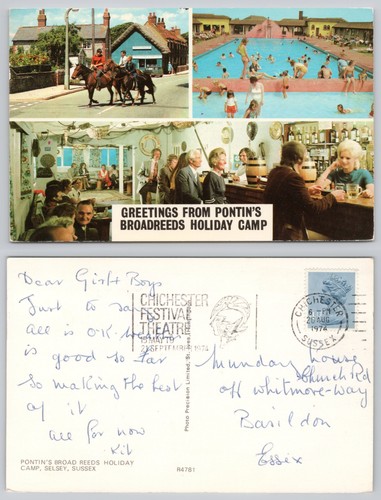 GREETINGS FROM PONTIN'S
BROADREEDS HOLIDAY CAMP
Dear Girls + Boys
Just to say
all is O.K.
is good so far
so making the best
of it
all for now
Kit
CHICHESTER
FESTIVAL
THEATRE
15 MAY TO
21 SEPTEMBER 1974
CHICHESTER
1974
SUSSEX
Munday house
Church Rd
off whitmore-way
Basildon
Essex
PONTIN'S BROAD REEDS HOLIDAY
CAMP, SELSEY, SUSSEX
R4781
Photo Precision Limited, St. Ives,